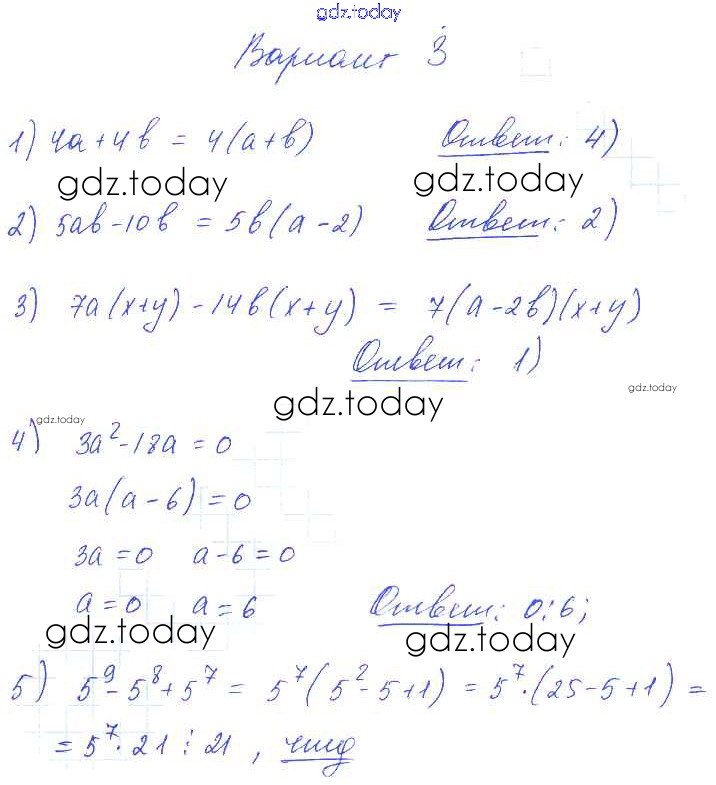 gdz.today
Вариант 3
1) 4a+4b = 4(a+b) Ответ: 4)
gdz.today gdz.today
2) 5ab-10b = 5b(a-2) Ответ: 2)
3) 7a(x+y)-14b(x+y) = 7(a-2b)(x+y)
Ответ: 1)
gdz.today gdz.today
gdz.today
4) 3a²-18a=0
3a(a-6)=0
3a=0 a-6=0
a=0 a=6 Ответ: 0;6;
gdz.today gdz.today
5) 5⁹-5⁸+5⁷ = 5⁷(5²-5+1) = 5⁷·(25-5+1) =
= 5⁷·21 ⋮ 21, чтд